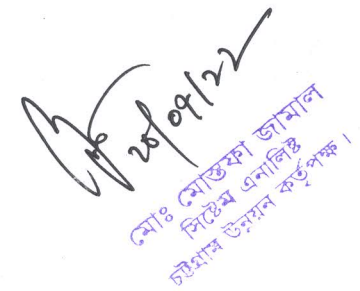 ২০/০৭/২২
মোঃ মোস্তফা জামাল
সিস্টেম এনালিষ্ট
চট্টগ্রাম উন্নয়ন কর্তৃপক্ষ।